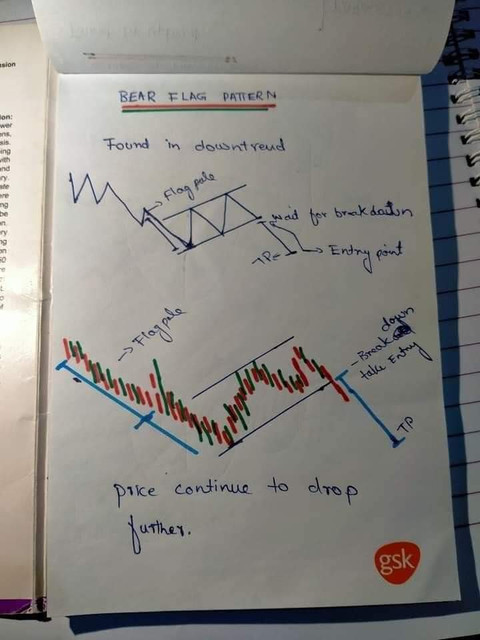 BEAR FLAG PATTERN
Found in downtrend
Flagpole
wait for breakdown
Entry point
TP
Flagpole
Break down
take Entry
TP
price continue to drop
further.
gsk